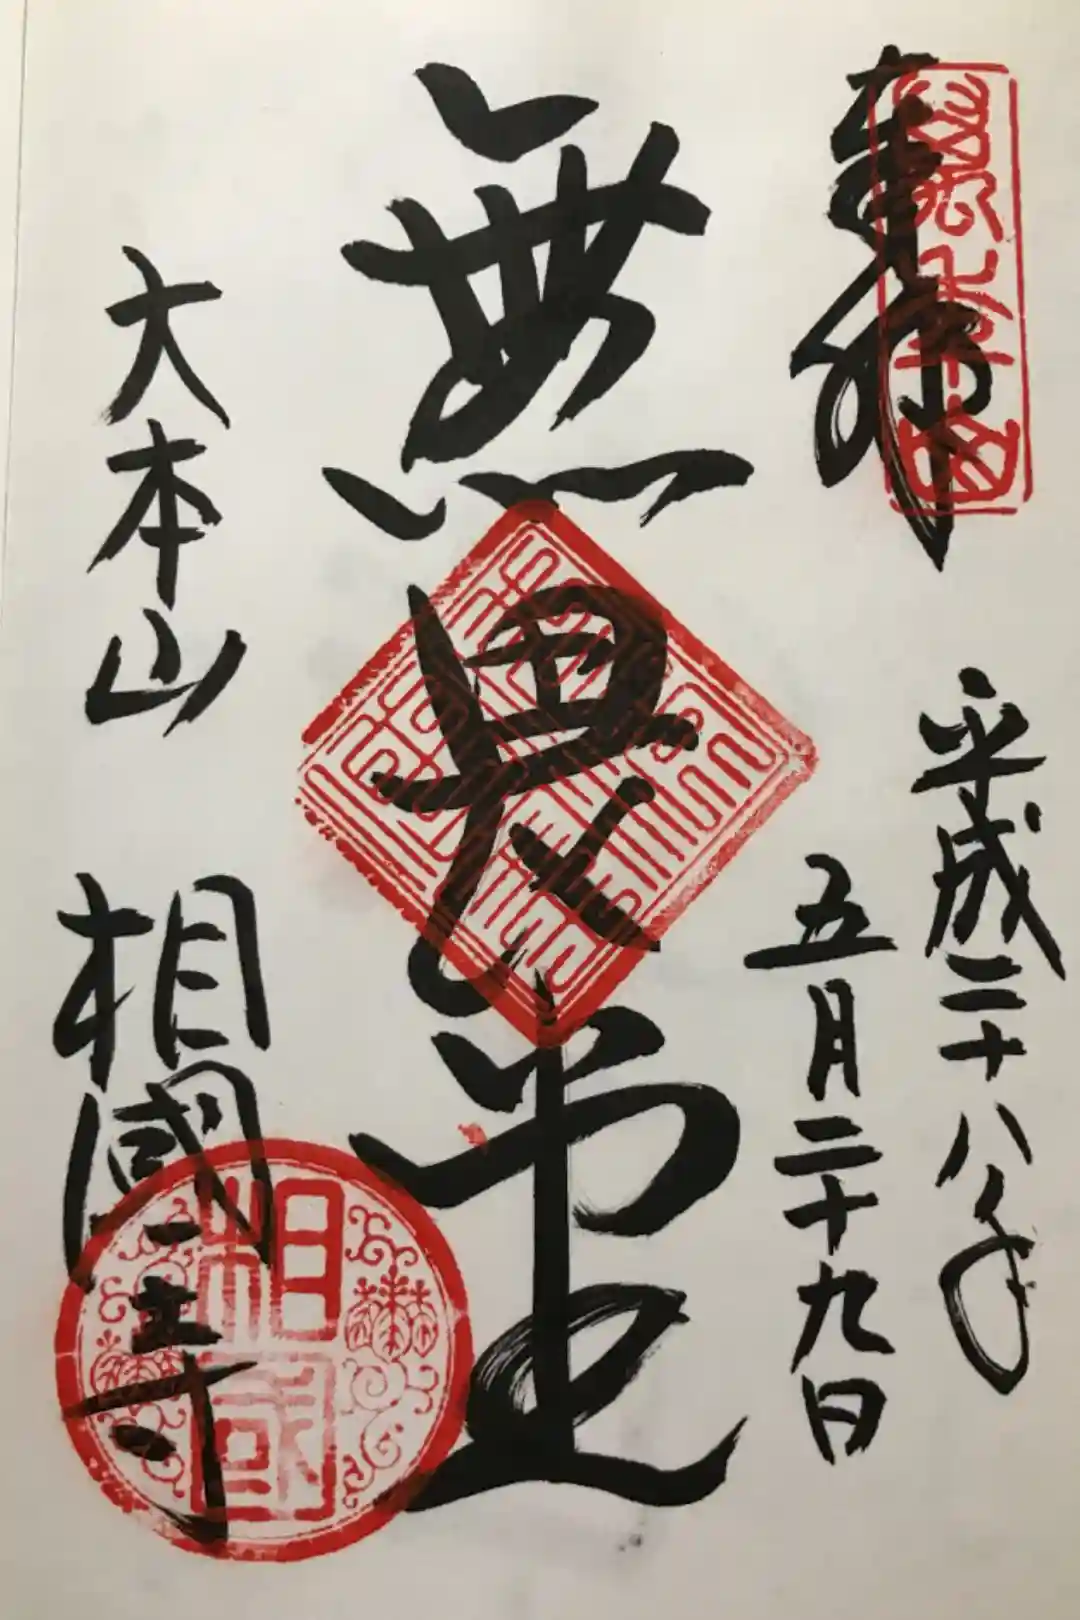 奉拝
萬年山
平成二十八年
五月二十九日
無畏堂
大本山
相國寺
相國